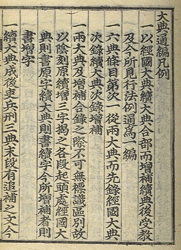 大典通編凡例
一以經國大典續大典合部而增補續典後受教
及今所見行法例通爲一編
一六典條目第次一從兩大典而先錄經國大典
次錄續大典次錄增補
一兩大典及增補合錄之際不可無標識區別故
以陰刻原續增三字揭之各段起頭處經國大
典則書原字續大典則書續字今所增補者則
書增字
一續大典成後吏兵刑三典末段有追補之文今